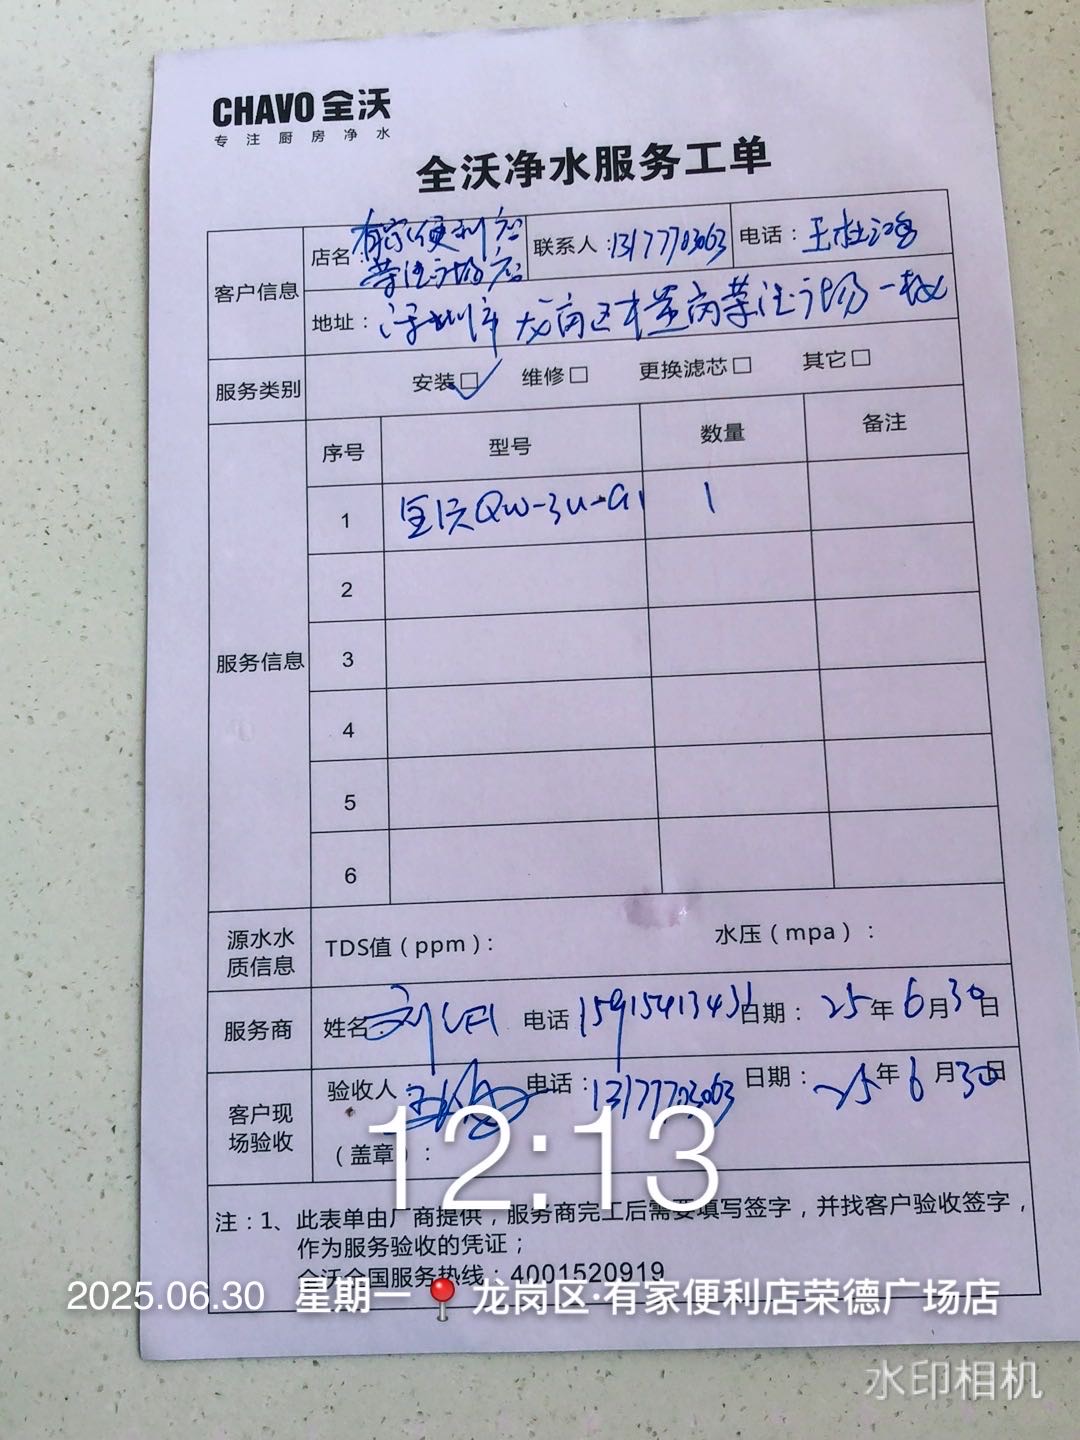 CHAVO 全沃
专注厨房净水
全沃净水服务工单
客户信息
店名：有家便利店
荣德广场店
联系人：13177703063
电话：王杜鸿
地址：深圳市龙岗区横岗荣德广场一楼
服务类别
安装☑ 维修□ 更换滤芯□ 其它□
服务信息
序号 型号 数量 备注
1 全沃QW-3U-G1 1
2
3
4
5
6
源水水
质信息
TDS值（ppm）： 水压（mpa）：
服务商
姓名 刘 电话 15915413431 日期：25年6月30日
客户现
场验收
验收人 电话：13177703063 日期：25年6月30日
（盖章）：
12:13
注：1、此表单由厂商提供，服务商完工后需要填写签字，并找客户验收签字，
作为服务验收的凭证；
全沃全国服务热线：4001520919
2025.06.30 星期一 龙岗区·有家便利店荣德广场店
水印相机